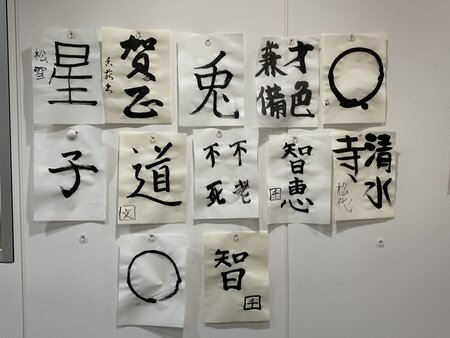 星
松雪
賀正
兎
才色
兼備
子
道
文
不老
不死
智恵
千
清水
寺
松代
智
千